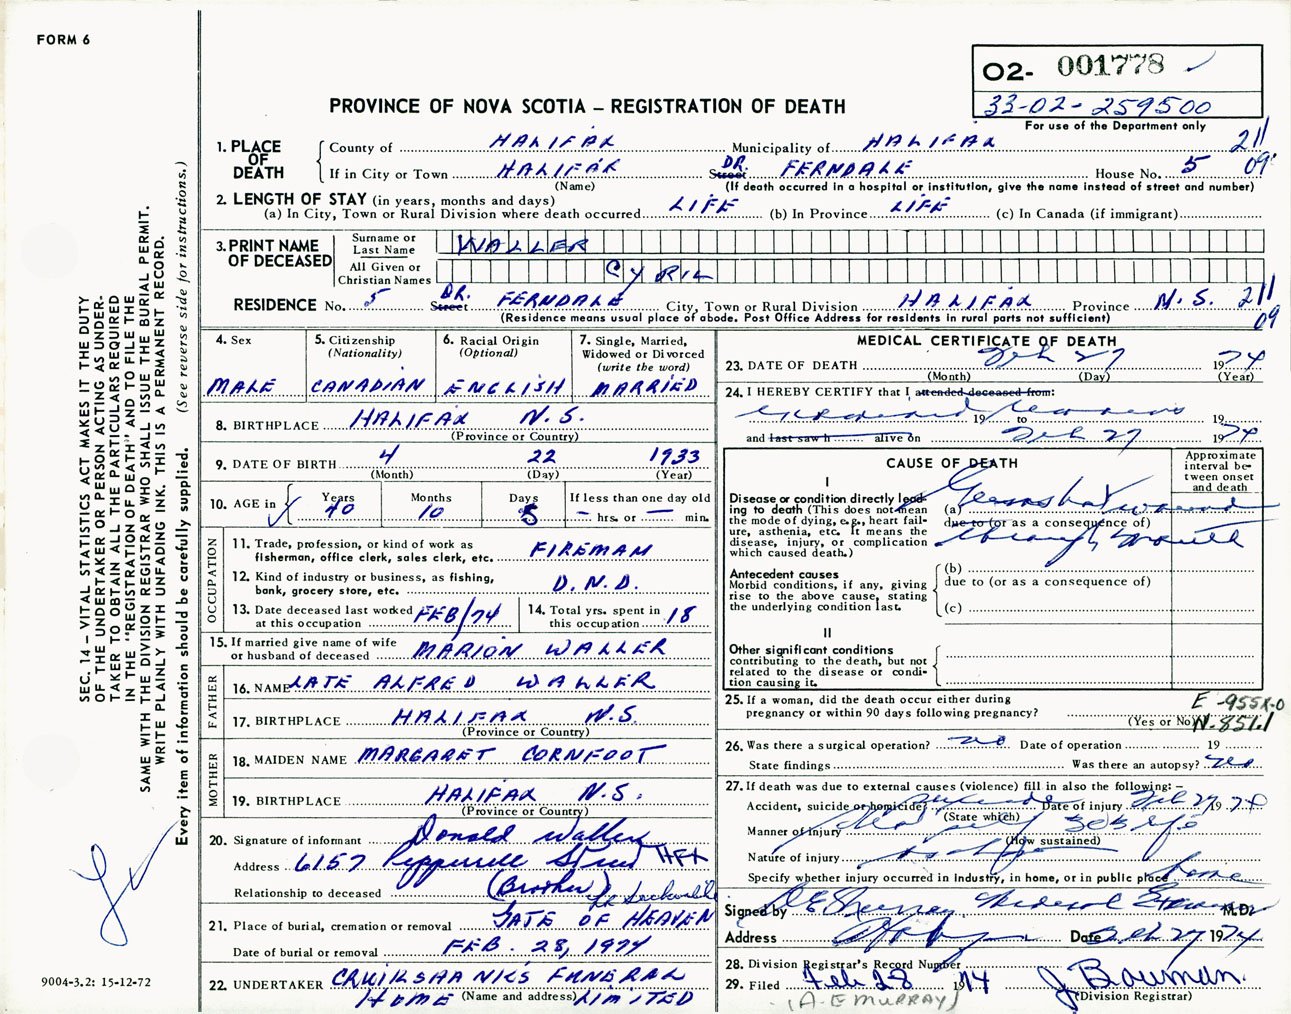 FORM 6
O2- 001778
33-02-259500
For use of the Department only
PROVINCE OF NOVA SCOTIA – REGISTRATION OF DEATH
1. PLACE OF DEATH
County of HALIFAX Municipality of HALIFAX 211
If in City or Town HALIFAX DR. Street FERNDALE House No. 5 09
(Name) (If death occurred in a hospital or institution, give the name instead of street and number)
2. LENGTH OF STAY (in years, months and days)
(a) In City, Town or Rural Division where death occurred LIFE (b) In Province LIFE (c) In Canada (if immigrant)
3. PRINT NAME OF DECEASED
Surname or Last Name WALLER
All Given or Christian Names CYRIL
RESIDENCE No. 5 DR. Street FERNDALE City, Town or Rural Division HALIFAX Province N.S. 211
09
(Residence means usual place of abode. Post Office Address for residents in rural parts not sufficient)
4. Sex
MALE
5. Citizenship
(Nationality)
CANADIAN
6. Racial Origin
(Optional)
ENGLISH
7. Single, Married,
Widowed or Divorced
(write the word)
MARRIED
8. BIRTHPLACE HALIFAX N.S.
(Province or Country)
9. DATE OF BIRTH 4 22 1933
(Month) (Day) (Year)
10. AGE in Years 40 Months 10 Days 5 If less than one day old
– hrs. or – min.
OCCUPATION
11. Trade, profession, or kind of work as
fisherman, office clerk, sales clerk, etc. FIREMAN
12. Kind of industry or business, as fishing,
bank, grocery store, etc. D.N.D.
13. Date deceased last worked
at this occupation FEB/74
14. Total yrs. spent in
this occupation 18
15. If married give name of wife
or husband of deceased MARION WALLER
FATHER
16. NAME LATE ALFRED WALLER
17. BIRTHPLACE HALIFAX N.S.
(Province or Country)
MOTHER
18. MAIDEN NAME MARGARET CORNFOOT
19. BIRTHPLACE HALIFAX N.S.
(Province or Country)
20. Signature of informant Donald Waller
Address 6157 Pepperell Street HFX
Relationship to deceased (Brother)
Lr Sackville
21. Place of burial, cremation or removal GATE OF HEAVEN
Date of burial or removal FEB. 28, 1974
22. UNDERTAKER CRUIKSHANKS FUNERAL
HOME (Name and address) LIMITED
MEDICAL CERTIFICATE OF DEATH
23. DATE OF DEATH Feb 27 1974
(Month) (Day) (Year)
24. I HEREBY CERTIFY that I attended deceased from:
19 to 19
and last saw h alive on Feb 27 1974
CAUSE OF DEATH
Approximate
interval be-
tween onset
and death
I
Disease or condition directly lead-
ing to death (This does not mean
the mode of dying, e.g., heart fail-
ure, asthenia, etc. It means the
disease, injury, or complication
which caused death.)
(a) Gunshot wound
due to (or as a consequence of)
through mouth
Antecedent causes
Morbid conditions, if any, giving
rise to the above cause, stating
the underlying condition last.
(b)
due to (or as a consequence of)
(c)
II
Other significant conditions
contributing to the death, but not
related to the disease or condi-
tion causing it.
25. If a woman, did the death occur either during
pregnancy or within 90 days following pregnancy?
(Yes or No)
E-955X.0
N-851.1
26. Was there a surgical operation? no Date of operation 19
State findings Was there an autopsy? yes
27. If death was due to external causes (violence) fill in also the following:–
Accident, suicide or homicide Suicide Date of injury Feb 27 1974
(State which)
Manner of injury 303 rifle
(How sustained)
Nature of injury
Specify whether injury occurred in industry, in home, or in public place home
Signed by A E Murray Medical Examiner M.D.
Address Date Feb 27 1974
28. Division Registrar's Record Number
29. Filed Feb 28 1974 J Bowman
(A. E MURRAY) (Division Registrar)
SEC. 14 – VITAL STATISTICS ACT MAKES IT THE DUTY
OF THE UNDERTAKER OR PERSON ACTING AS UNDER-
TAKER TO OBTAIN ALL THE PARTICULARS REQUIRED
IN THE "REGISTRATION OF DEATH" AND TO FILE THE
SAME WITH THE DIVISION REGISTRAR WHO SHALL ISSUE THE BURIAL PERMIT.
WRITE PLAINLY WITH UNFADING INK. THIS IS A PERMANENT RECORD.
Every item of information should be carefully supplied. (See reverse side for instructions.)
9004-3.2: 15-12-72